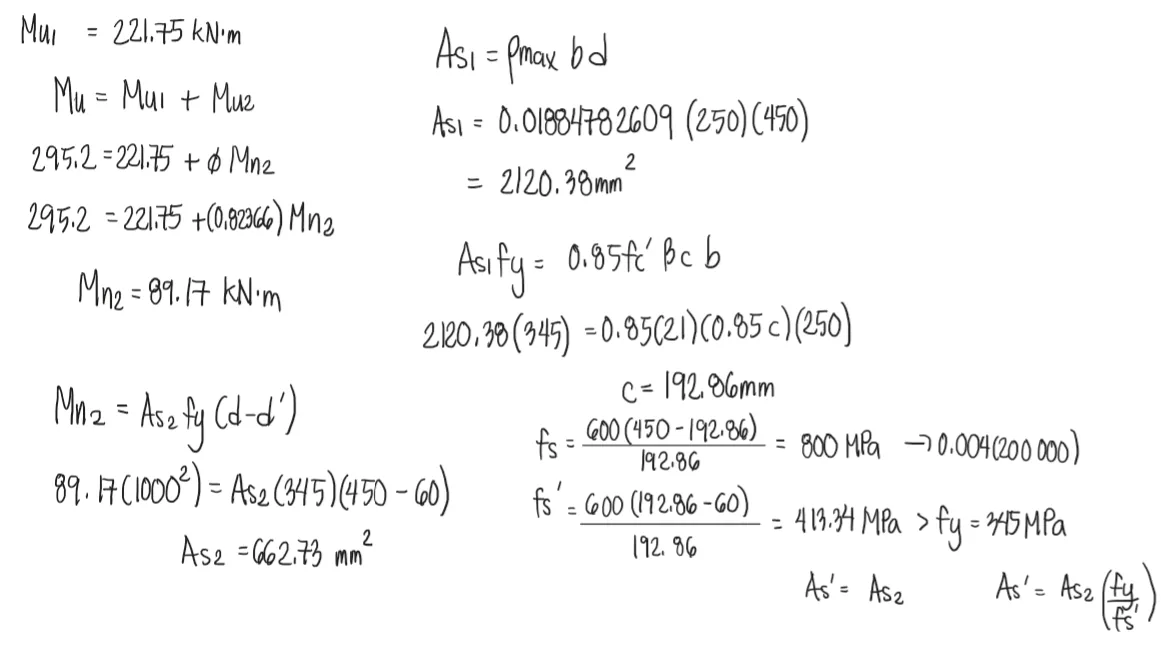 Mu1 = 221.75 kN·m
Mu = Mu1 + Mu2
295.2 = 221.75 + ϕ Mn2
295.2 = 221.75 + (0.82366) Mn2
Mn2 = 89.17 kN·m
Mn2 = As2 fy (d-d')
89.17(1000²) = As2(345)(450 - 60)
As2 = 662.73 mm²
As1 = ρmax bd
As1 = 0.01884782609 (250)(450)
= 2120.38mm²
As1fy = 0.85fc' βc b
2120.38(345) = 0.85(21)(0.85 c)(250)
c = 192.86mm
fs = 600(450-192.86)/192.86 = 800 MPa → 0.004(200 000)
fs' = 600(192.86-60)/192.86 = 413.34 MPa > fy = 345MPa
As' = As2 As' = As2 (fy/fs')